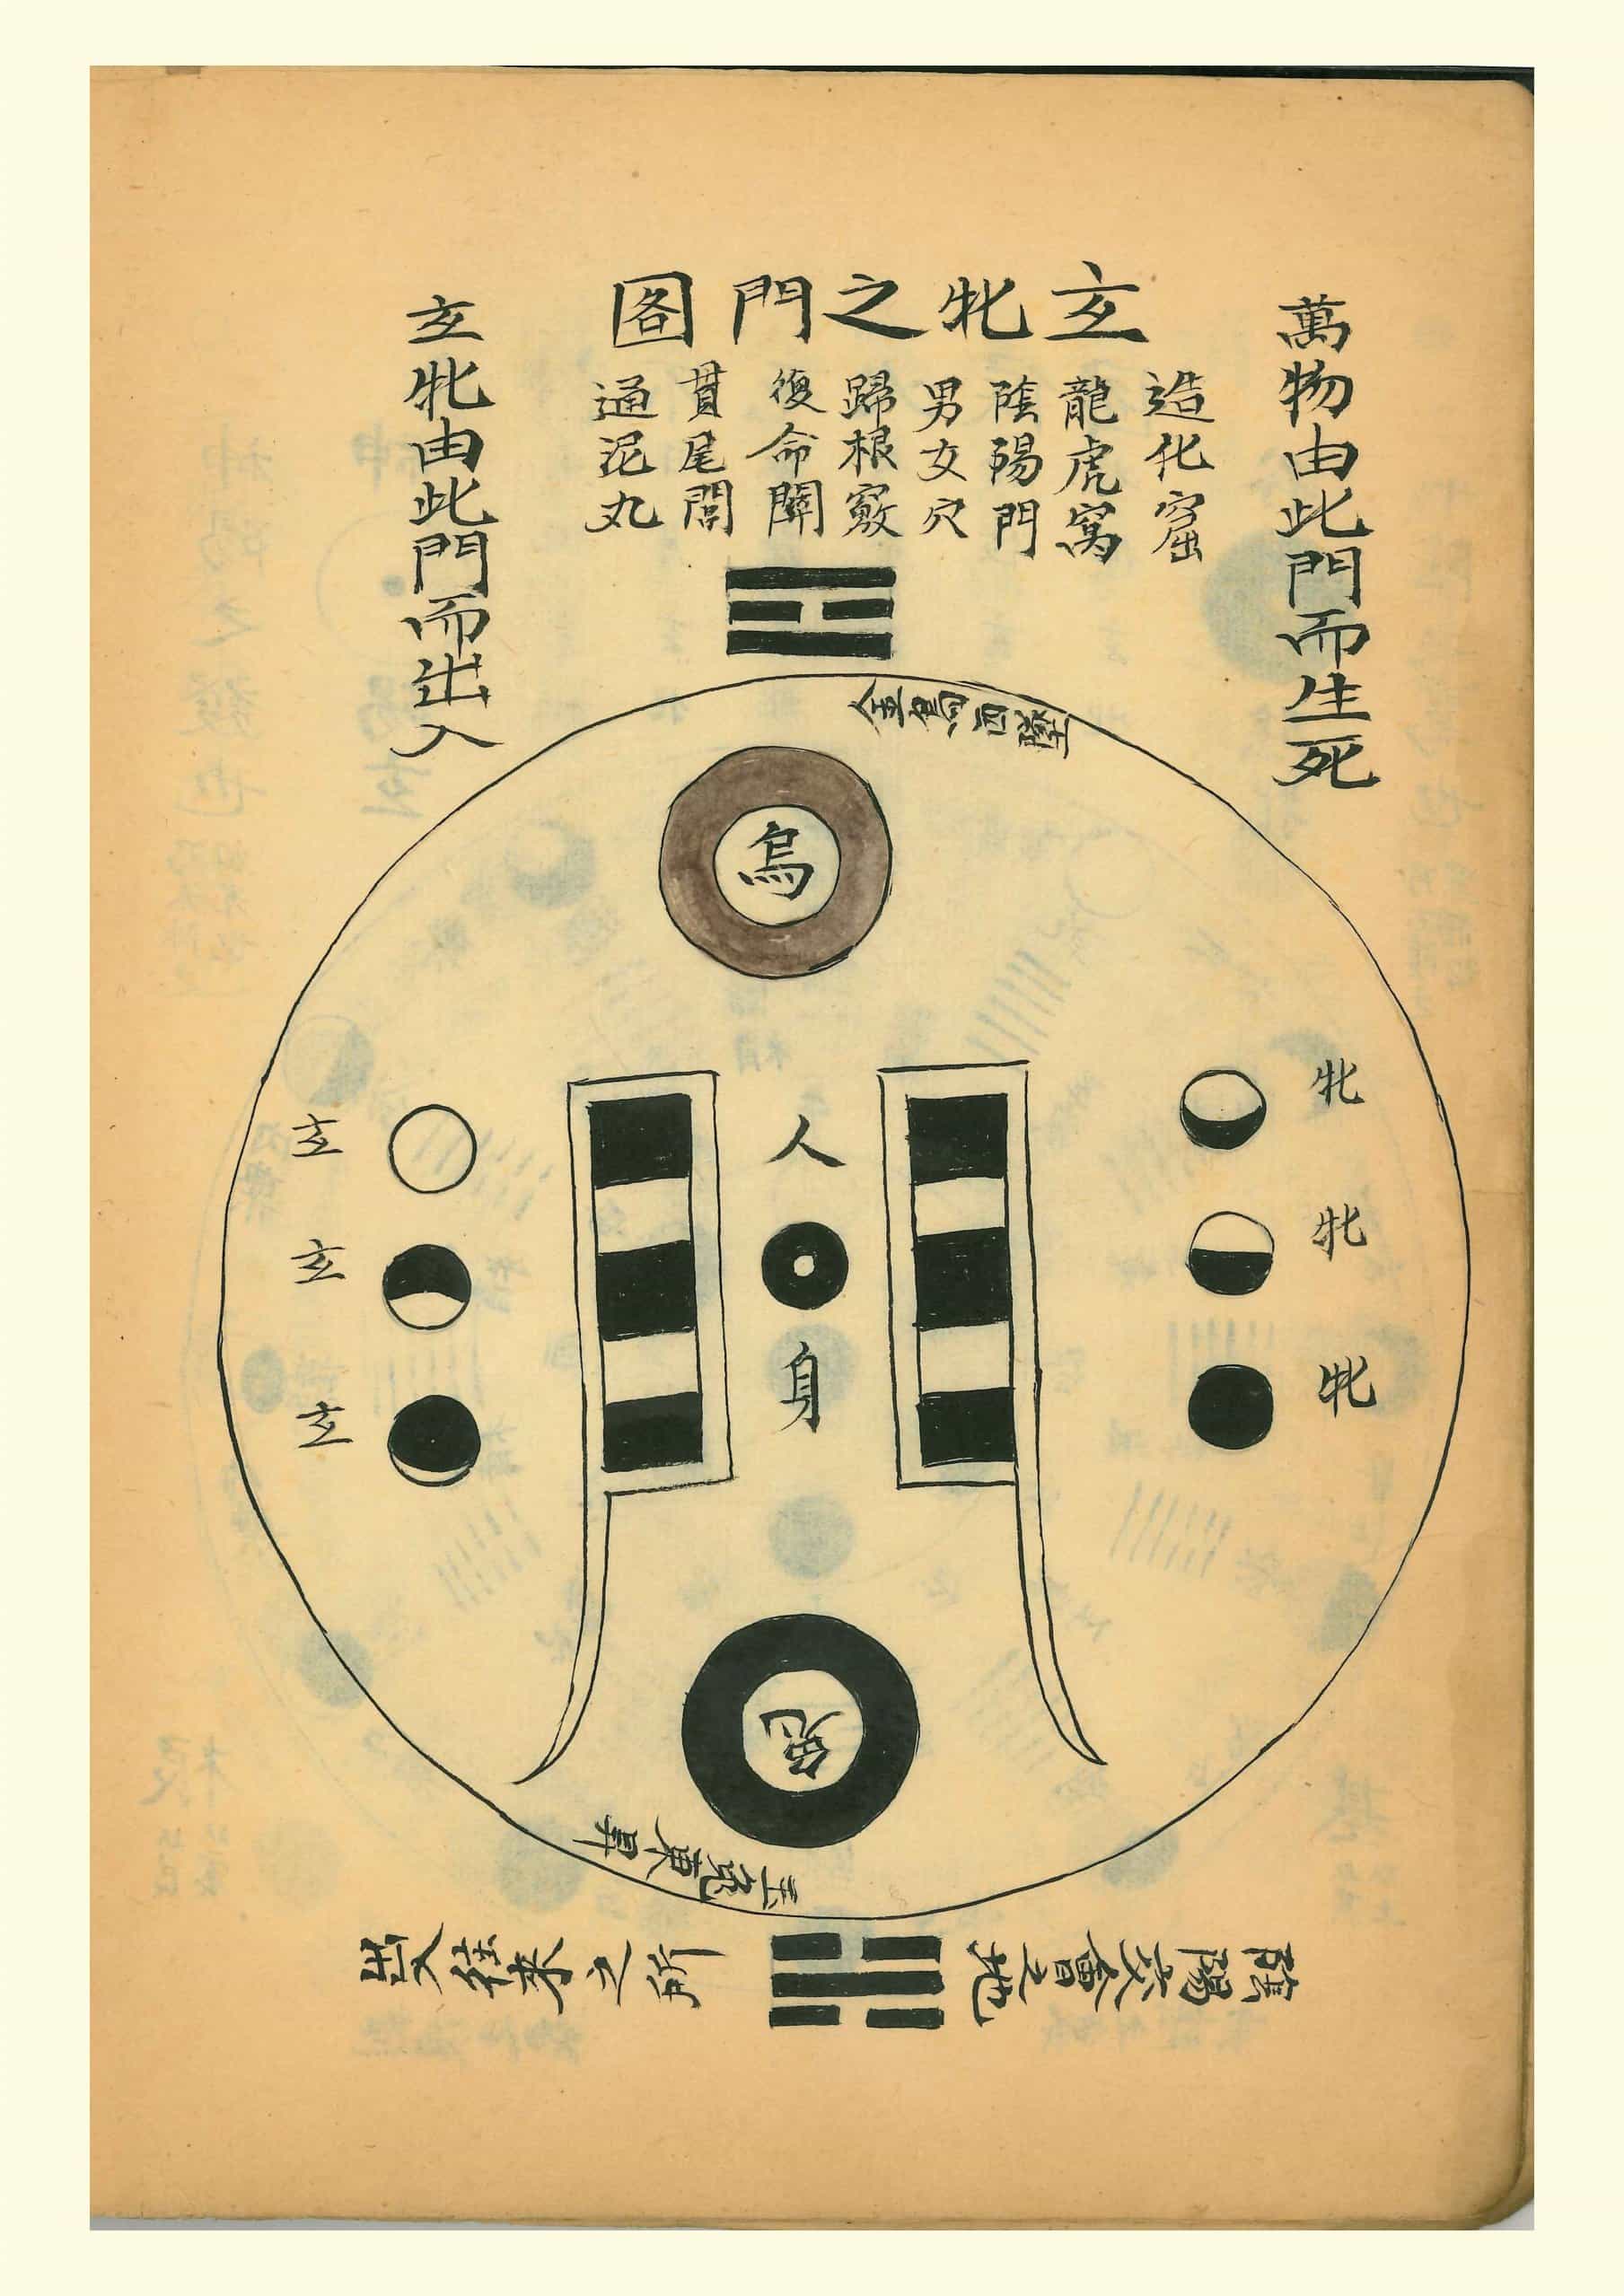 萬物由此門而生死
玄牝之門圖
造化窟
龍虎窩
陰陽門
男女穴
歸根竅
復命關
貫尾閭
通泥丸
玄牝由此門而出入
金烏西墜
烏
牝
牝
牝
人
身
玄
玄
玄
兔
玉兔東昇
陰陽交會之地
出入往來之所